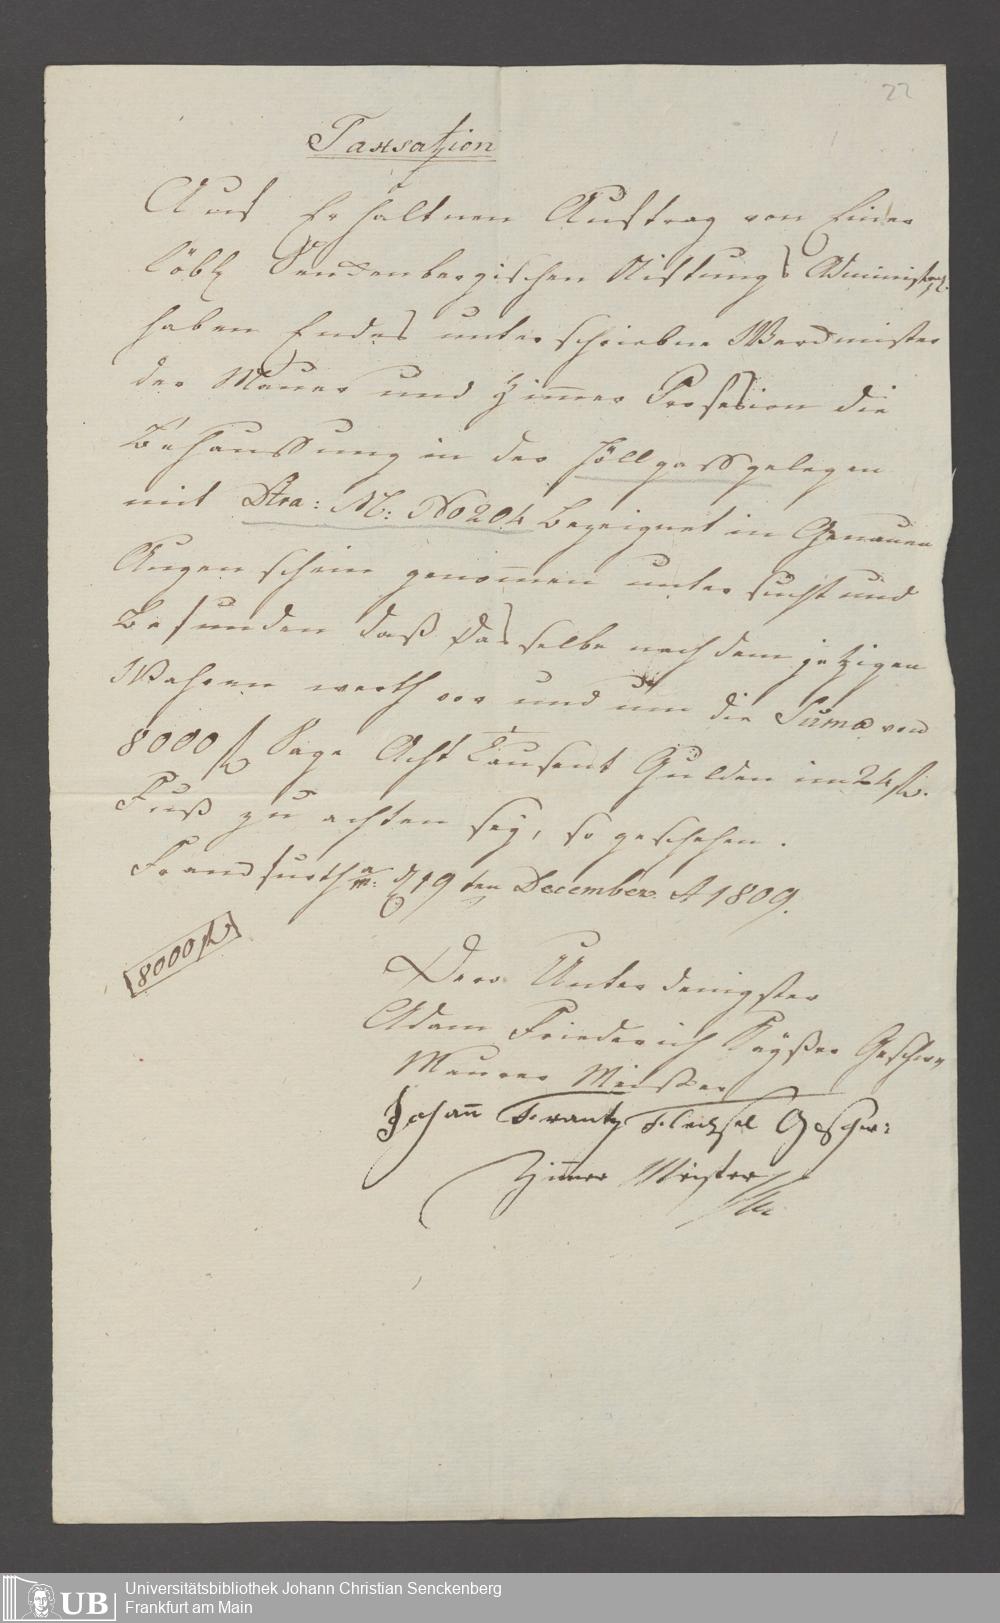 22
Taxsatzion
Auf Erhaltnen Auftrag von Einer
löbl Senckenbergischen Stiftungs Administraz.
haben Endes unterschriebne Werckmister
der Maurer und Zim̅er Profesion die
Behaussung in der Höllgass gelegen
mit Litra: M: No 204 bezeignet in Genauen
Augenschein genom̅en untersucht und
befunden daß Dasselbe nach dem jetzigen
Wahren werth vor und um die Suma von
8000 f Sage Acht Tausent Gulden im 24 f.
Fuß zu achten sey, so geschehen.
Franckfurth a. m. d 19ten December A 1809.
8000 f
Dero Unterdenigster
Adam Friederich Kayßer Geschw
Maurer Meister
Johan̅ Frantz Geschw:
Zim̅er Meister
UB
Universitätsbibliothek Johann Christian Senckenberg
Frankfurt am Main